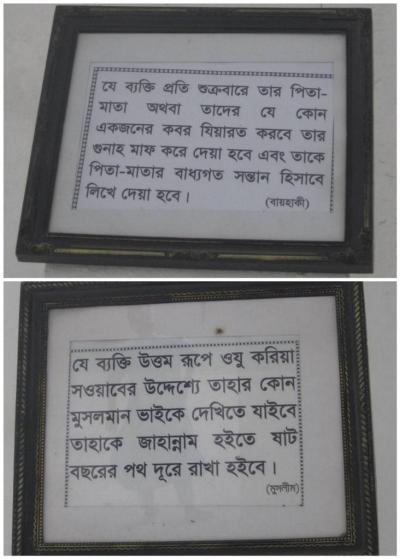 যে ব্যক্তি প্রতি শুক্রবারে তার পিতা-
মাতা অথবা তাদের যে কোন
একজনের কবর যিয়ারত করবে তার
গুনাহ মাফ করে দেয়া হবে এবং তাকে
পিতা-মাতার বাধ্যগত সন্তান হিসাবে
লিখে দেয়া হবে।
(বায়হাকী)
যে ব্যক্তি উত্তম রূপে ওযু করিয়া
সওয়াবের উদ্দেশ্যে তাহার কোন
মুসলমান ভাইকে দেখিতে যাইবে
তাহাকে জাহান্নাম হইতে ষাট
বছরের পথ দূরে রাখা হইবে।
(মুসলীম)